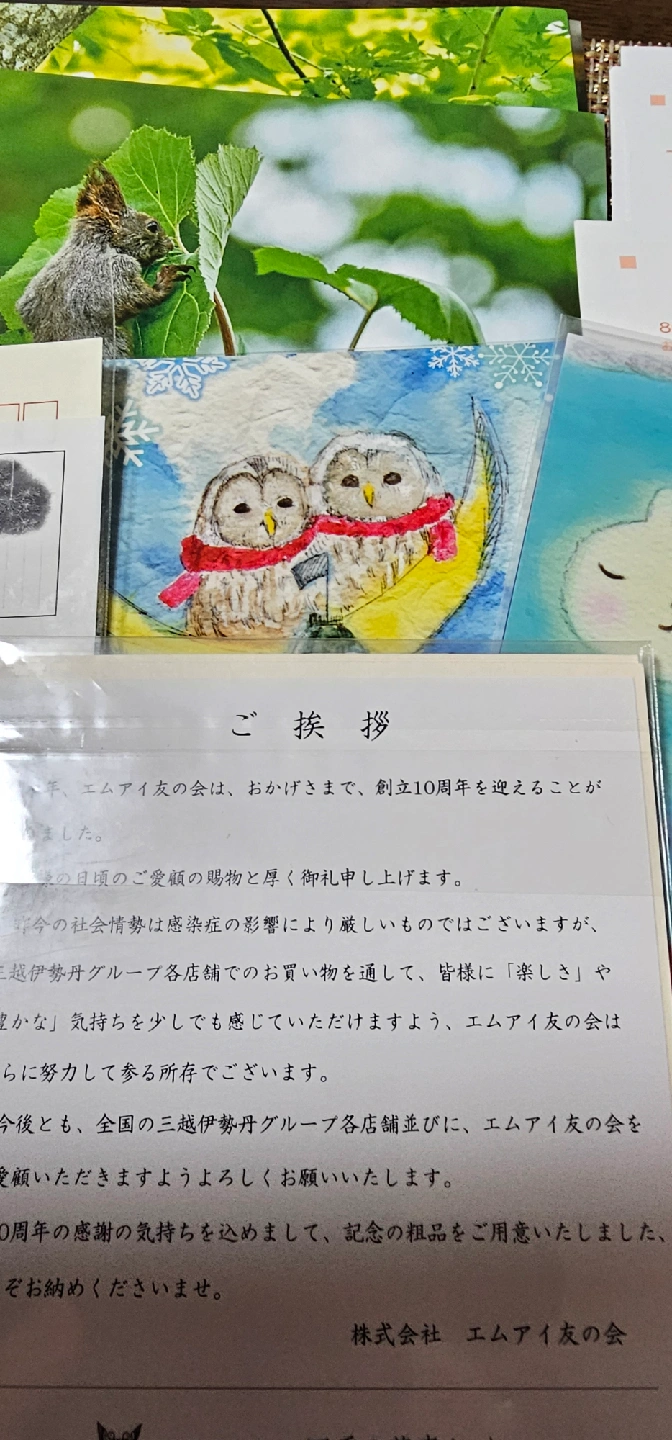 8
ご 挨 拶
年、エムアイ友の会は、おかげさまで、創立10周年を迎えることが
ました。
の日頃のご愛顧の賜物と厚く御礼申し上げます。
昨今の社会情勢は感染症の影響により厳しいものではございますが、
三越伊勢丹グループ各店舗でのお買い物を通して、皆様に「楽しさ」や
豊かな」気持ちを少しでも感じていただけますよう、エムアイ友の会は
らに努力して参る所存でございます。
今後とも、全国の三越伊勢丹グループ各店舗並びに、エムアイ友の会を
愛顧いただきますようよろしくお願いいたします。
0周年の感謝の気持ちを込めまして、記念の粗品をご用意いたしました、
ぞお納めくださいませ。
株式会社 エムアイ友の会